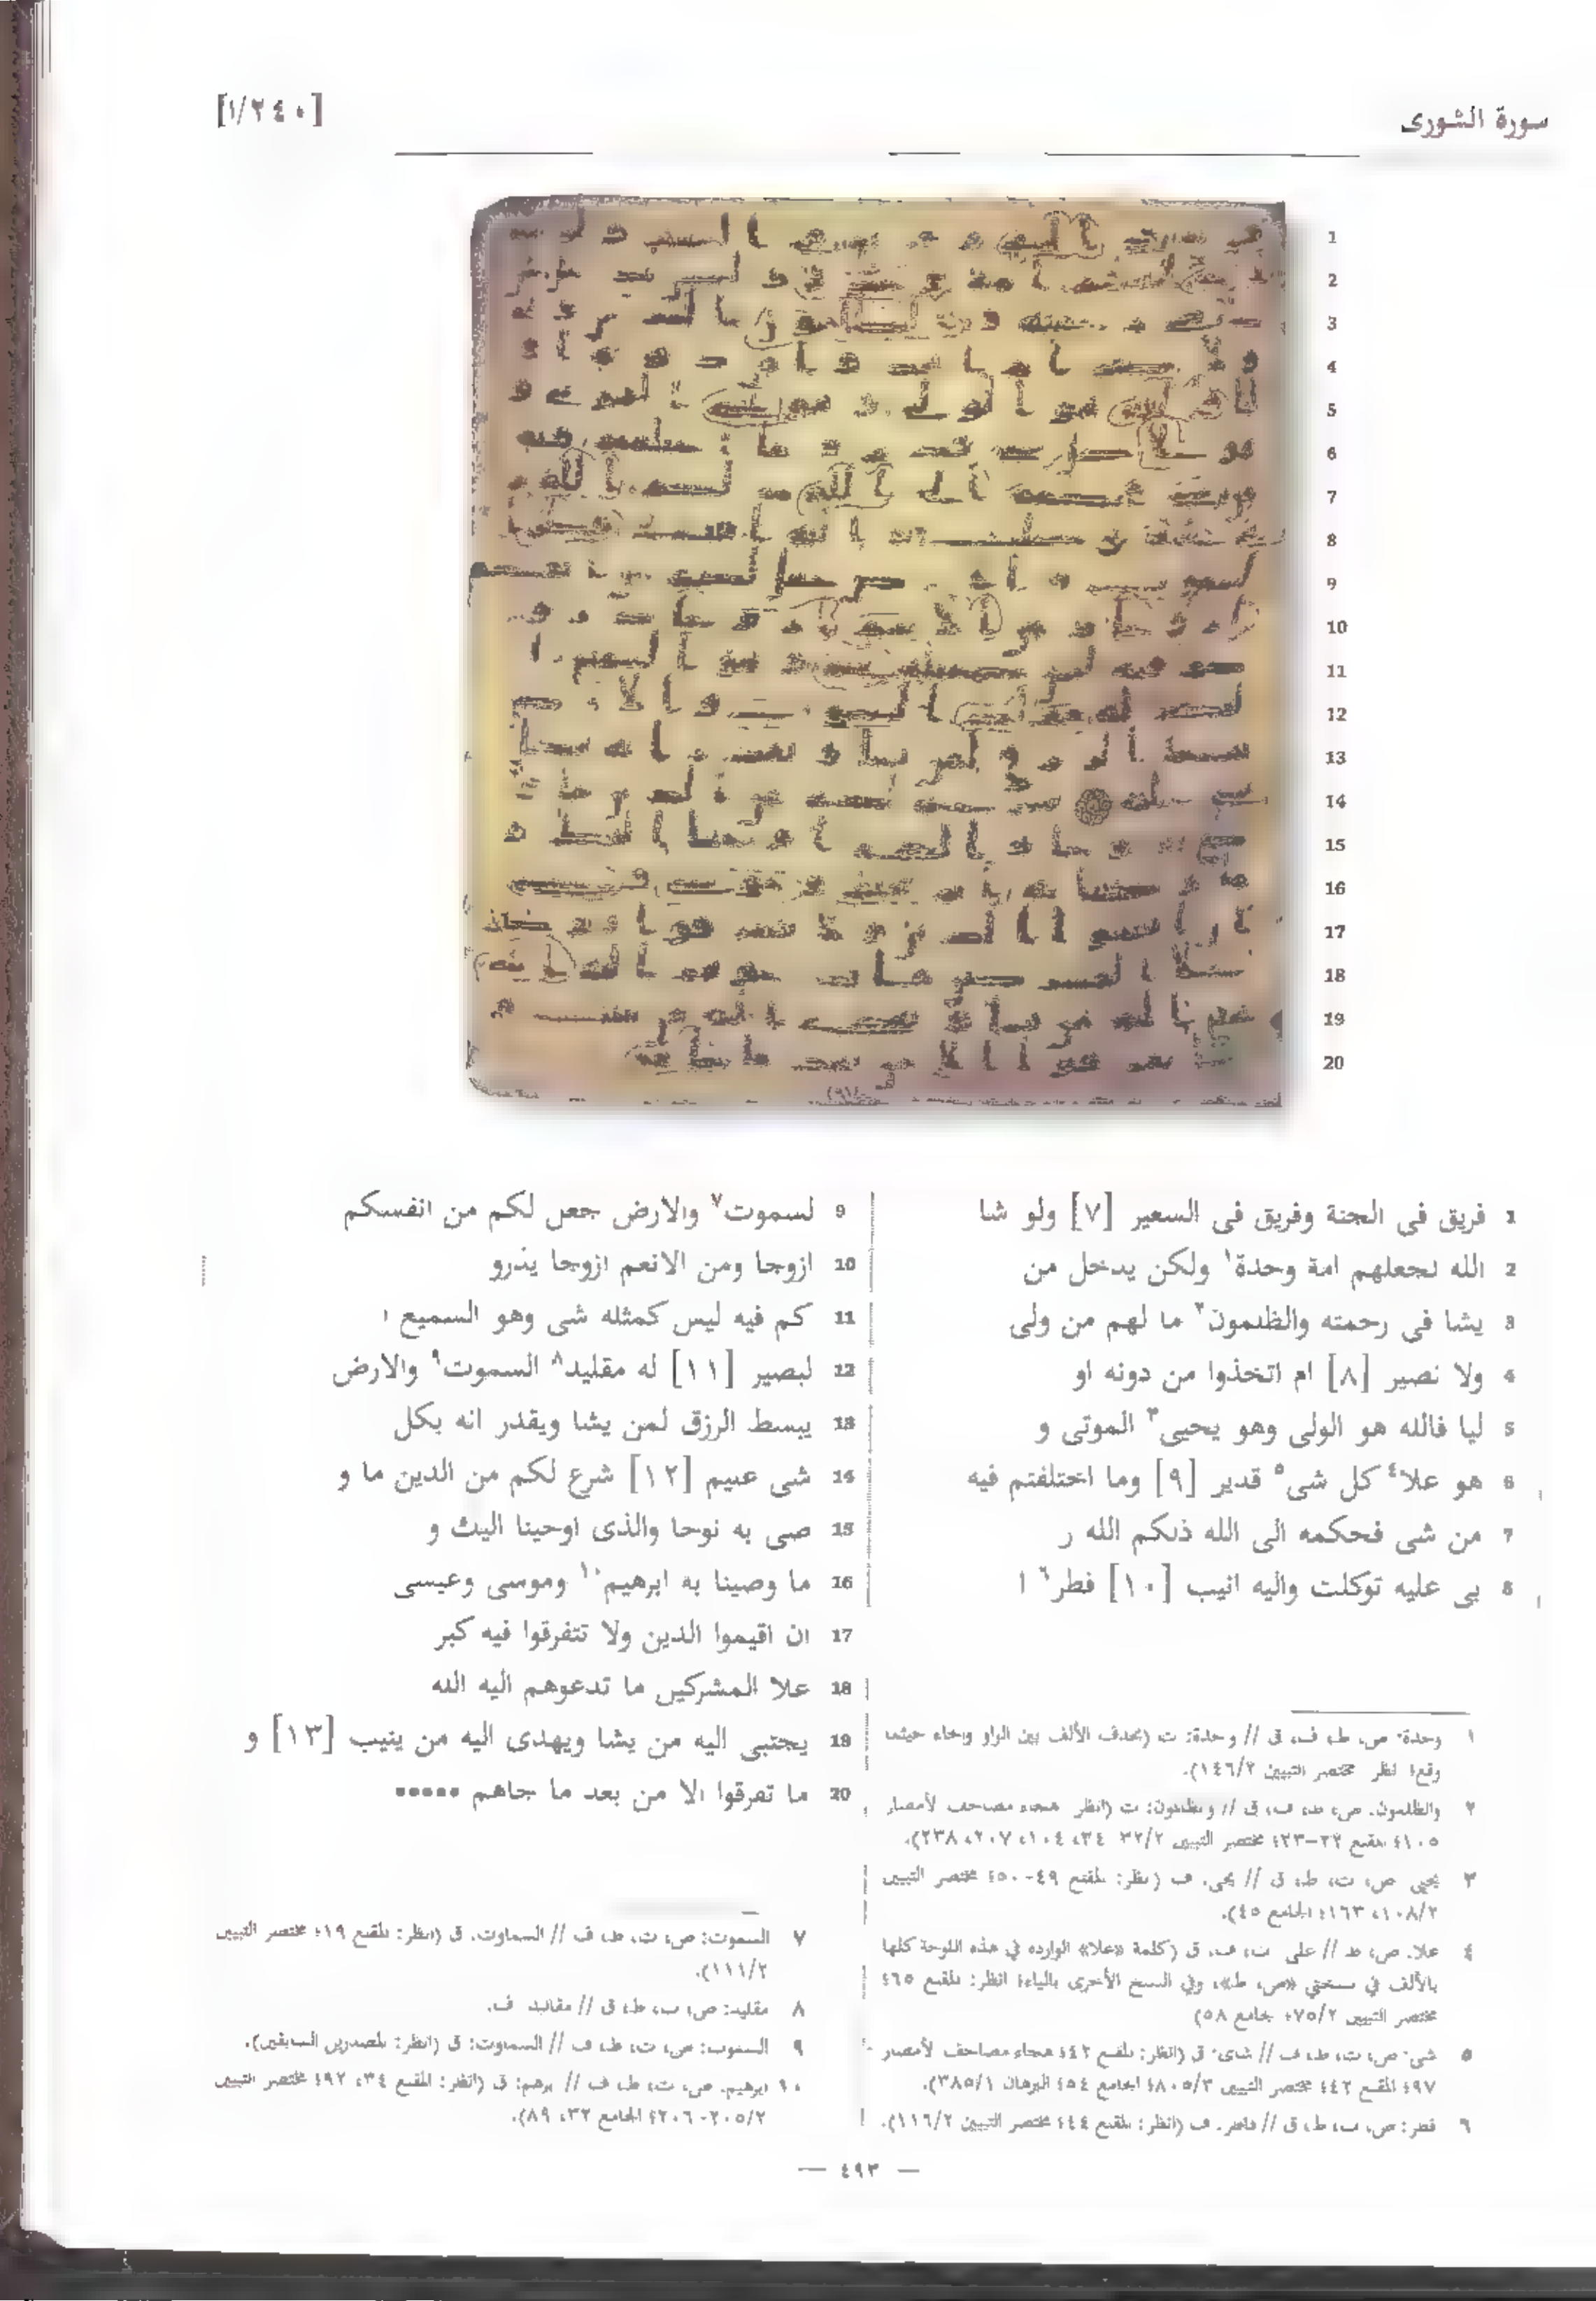 سورة الشورى
[١/٢٤٠]
1 فريق فى الجنة وفريق فى السعير [٧] ولو شا
2 الله لجعلهم امة وحدة١ ولكن يدخل من
3 يشا فى رحمته والظلمون٢ ما لهم من ولى
4 ولا نصير [٨] ام اتخذوا من دونه او
5 ليا فالله هو الولى وهو يحيى٣ الموتى و
6 هو علا٤ كل شى٥ قدير [٩] وما اختلفتم فيه
7 من شى فحكمه الى الله ذلكم الله ر
8 بى عليه توكلت واليه انيب [١٠] فطر٦ ا
9 لسموت٧ والارض جعل لكم من انفسكم
10 ازوجا ومن الانعم ازوجا يذرو
11 كم فيه ليس كمثله شى وهو السميع ا
12 لبصير [١١] له مقليد٨ السموت٩ والارض
13 يبسط الرزق لمن يشا ويقدر انه بكل
14 شى عليم [١٢] شرع لكم من الدين ما و
15 صى به نوحا والذى اوحينا اليك و
16 ما وصينا به ابرهيم١٠ وموسى وعيسى
17 ان اقيموا الدين ولا تتفرقوا فيه كبر
18 علا المشركين ما تدعوهم اليه الله
19 يجتبى اليه من يشا ويهدى اليه من ينيب [١٣] و
20 ما تفرقوا الا من بعد ما جاهم •••••
١ وحدة: ص، ط، ف، ق // وحدة: ت (بحذف الألف بين الواو والحاء حيثما
وقع؛ انظر مختصر التبيين ١٤٦/٢).
٢ والظلمون: ص، ط، ف، ق // والظلمون: ت (انظر هجاء مصاحف الأمصار
١٠٥؛ المقنع ٢٢-٢٣؛ مختصر التبيين ٣٢/٢، ٣٤، ١٠٤، ٢٠٧، ٢٣٨).
٣ يحيى: ص، ت، ط، ق // يحى: ف (انظر: المقنع ٤٩-٥٠؛ مختصر التبيين
١٠٨/٢، ١٦٣؛ الجامع ٤٥).
٤ علا: ص، ط // على: ت، ف، ق (كلمة «علا» الوارده في هذه اللوحة كلها
بالألف في نسختي «ص، ط»، وفي النسخ الأخرى بالياء؛ انظر: المقنع ٦٥؛
مختصر التبيين ٧٥/٢؛ الجامع ٥٨)
٥ شى: ص، ت، ط، ف // شاى: ق (انظر: المقنع ٤٢؛ هجاء مصاحف الأمصار
٩٧؛ المقنع ٤٢؛ مختصر التبيين ٨٠٥/٣؛ الجامع ٥٤؛ البرهان ٣٨٥/١).
٦ فطر: ص، ت، ط، ق // فاطر: ف (انظر: المقنع ٤٤؛ مختصر التبيين ١١٦/٢).
٧ السموت: ص، ت، ط، ف // السماوت: ق (انظر: المقنع ١٩؛ مختصر التبيين
١١١/٢).
٨ مقليد: ص، ت، ط، ق // مقاليد: ف.
٩ السموت: ص، ت، ط، ف // السماوت: ق (انظر: المصدرين السابقين).
١٠ ابرهيم: ص، ت، ط، ف // برهم: ق (انظر: المقنع ٣٤، ٩٢؛ مختصر التبيين
٢٠٥/٢-٢٠٦؛ الجامع ٣٢، ٨٩).
— ٤٩٣ —